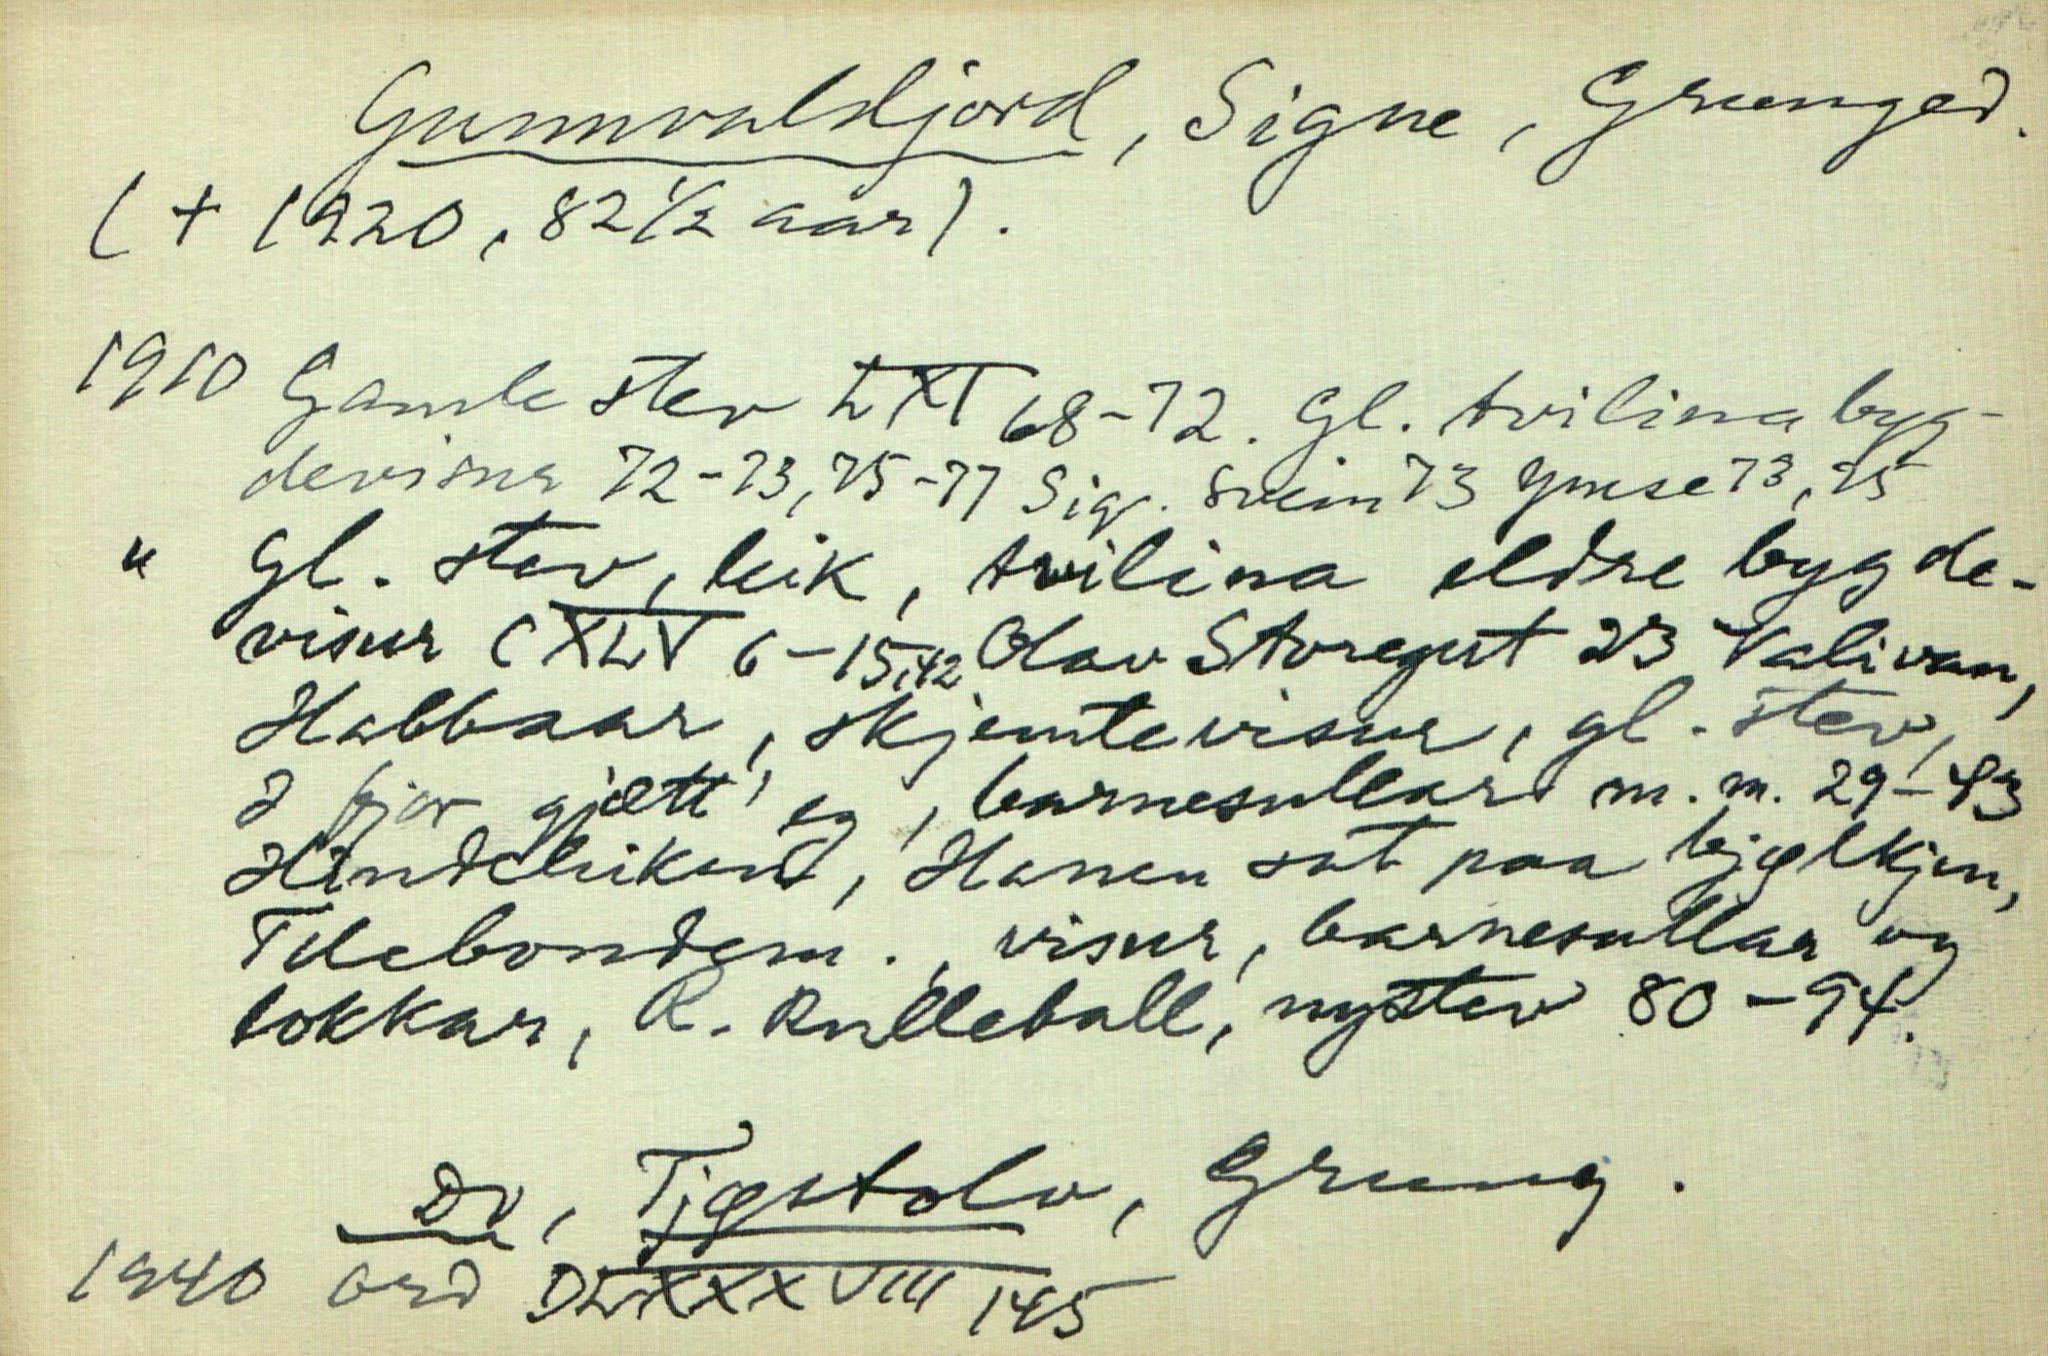 Gunnvaldjord, Signe, Grunged.
(+ 1920, 82 1/2 aar).
1910 Gamle stev LXI 68-72. Gl. Avilina byg-
devisur 72-73, 75-77 Sig. Svein 73 Ymse 73, 75
" Gl. stev, leik, Avilina eldre bygde-
visur CXLV 6-15,42 Olav Storegut 23 Valivan,
Habbaar, skjemtevisur, gl. stev,
I fjor gjætt' eg, barnesullar m. m. 29-43
Hindeleiken, Hanen sat paa bjælkjen,
Telebondem., visur, barnesullar og
lokkar, R. Rulleball, nystev 80-94.
Do, Tjøstolv, Grung.
1940 ord DLXXXVIII 145